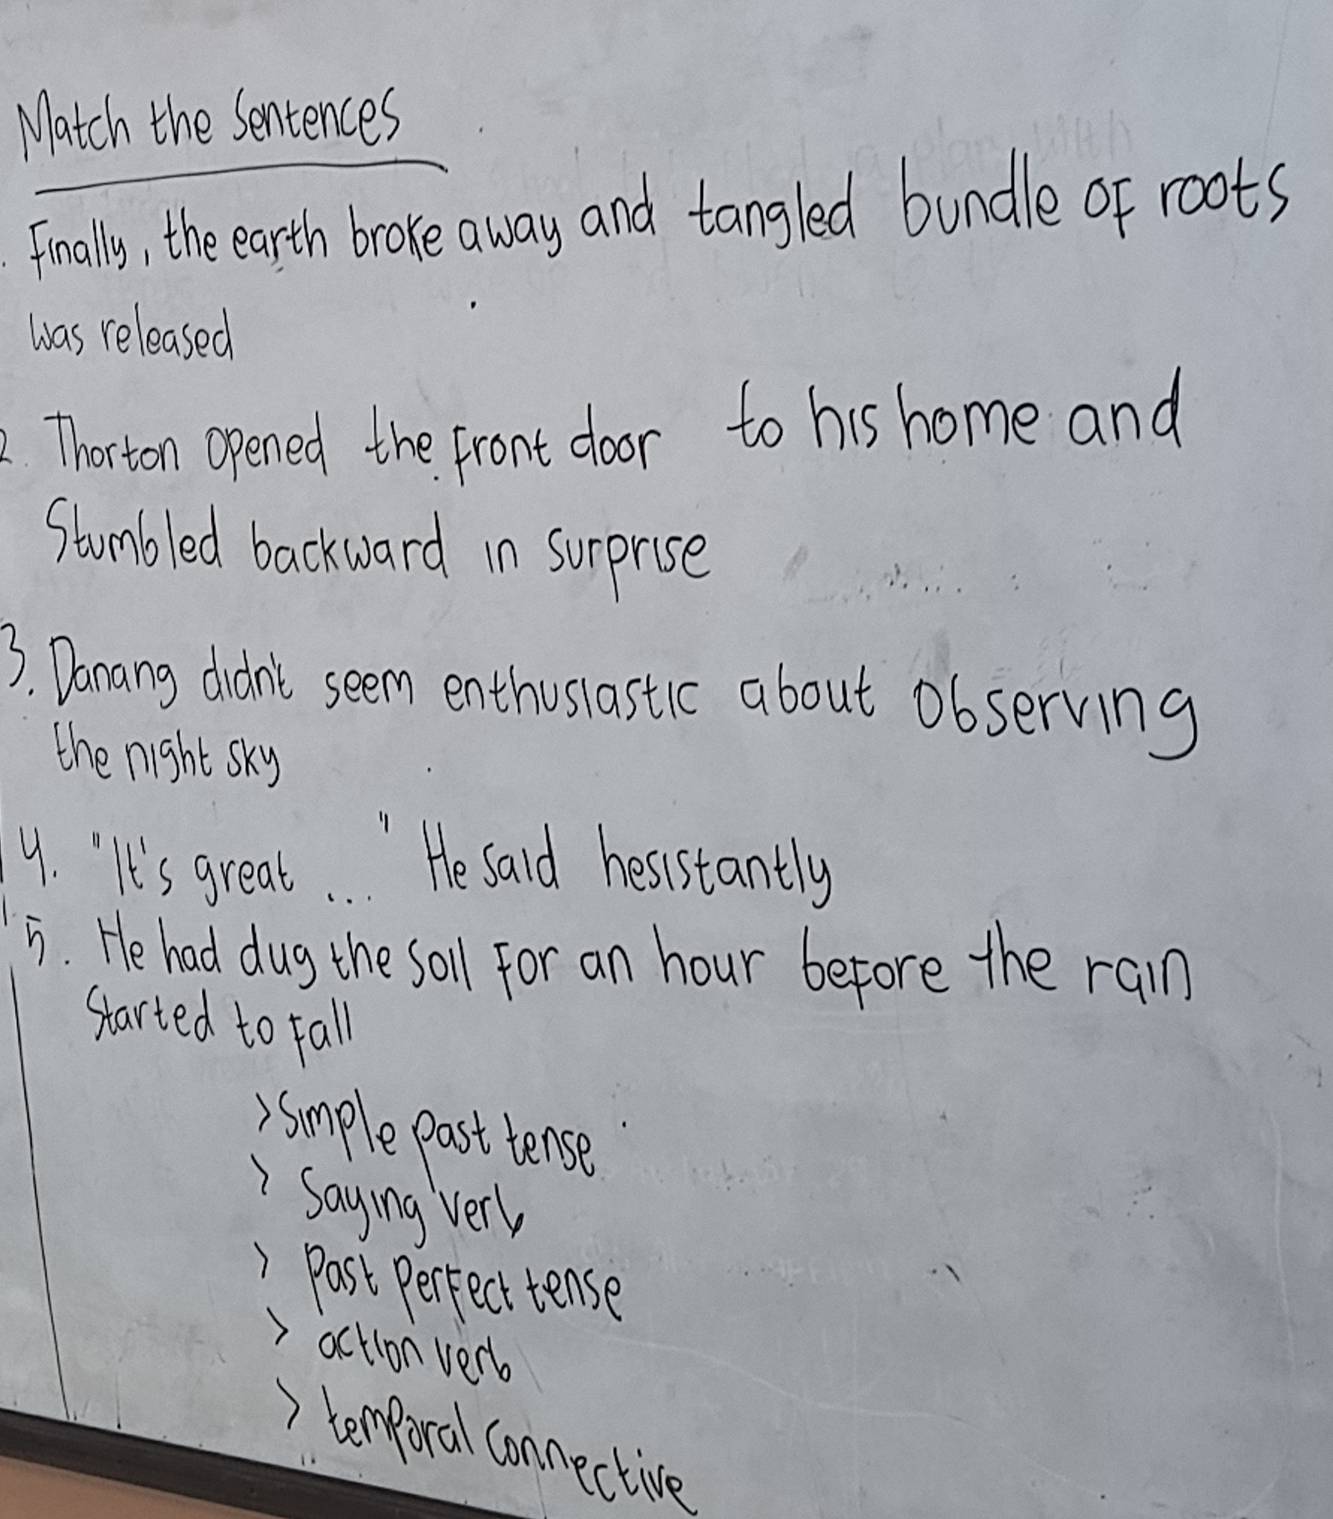 Match the Sentences
. Finally, the earth broke away and tangled bundle of roots
was released
2. Thorton opened the front door to his home and
Stumbled backward in surprise
3. Danang didn't seem enthusiastic about observing
the night sky
4. "It's great ..." He said hesistantly
5. He had dug the soil for an hour before the rain
started to fall
> Simple past tense
> Saying verb
> Past perfect tense
> action verb
> temporal connective